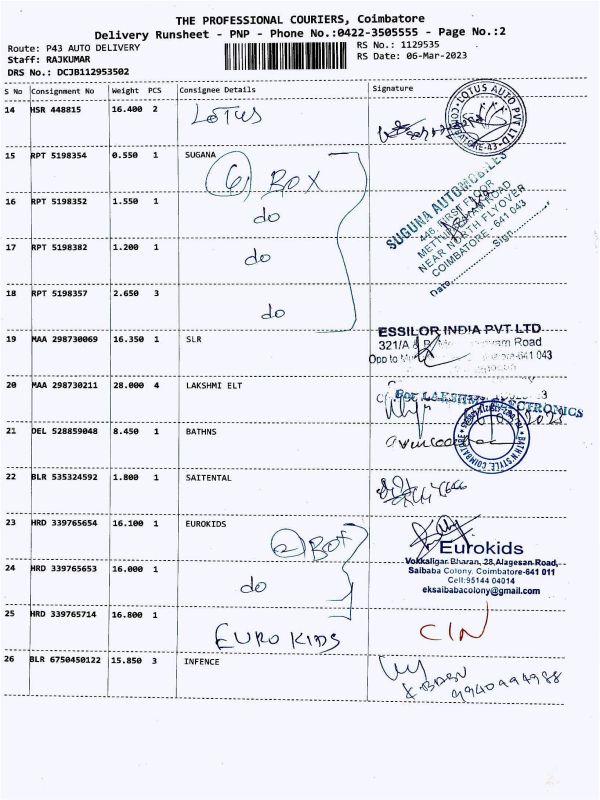 THE PROFESSIONAL COURIERS, Coimbatore
Delivery Runsheet - PNP - Phone No.:0422-3505555 - Page No.:2
Route: P43 AUTO DELIVERY
RS No.: 1129535
Staff: RAJKUMAR
RS Date: 06-Mar-2023
DRS No.: DCJB112953502
S No Consignment No Weight PCS Consignee Details Signature
14 HSR 448815 16.400 2 LOTUS
LOTUS AUTO PVT LTD
15 RPT 5198354 0.550 1 SUGANA
6 BOX
SUGUNA AUTOMOBILES
446, FIRST FLOOR
NEAR NORTH FLYOVER
COIMBATORE - 641 043
Date Sign
16 RPT 5198352 1.550 1 do
17 RPT 5198382 1.200 1 do
18 RPT 5198357 2.650 3 do
19 MAA 298730069 16.350 1 SLR
ESSILOR INDIA PVT LTD
321/A & B Road
Opp to 641 043
20 MAA 298730211 28.000 4 LAKSHMI ELT
LAKSHMI ELECTRONICS
21 DEL 528859048 8.450 1 BATHNS
BATH N STYLE, COIMBATORE
22 BLR 535324592 1.800 1 SAITENTAL
23 HRD 339765654 16.100 1 EUROKIDS
2 BOX
Eurokids
Vokkaligar Bharan, 28,Alagesan Road,
Saibaba Colony, Coimbatore-641 011
Cell:95144 04014
eksaibabacolony@gmail.com
24 HRD 339765653 16.000 1 do
25 HRD 339765714 16.800 1
EURO KIDS
CIN
26 BLR 6750450122 15.850 3 INFENCE
K. BABU
9940994988